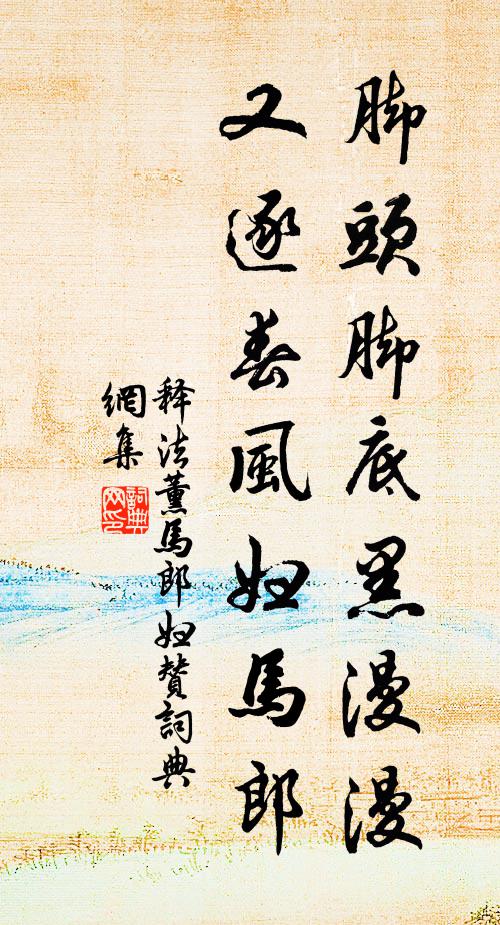 脚頭脚底黑漫漫
又逐春風婦馬郎
释法薰馬郎婦贊詞典
網集
詞典
网印